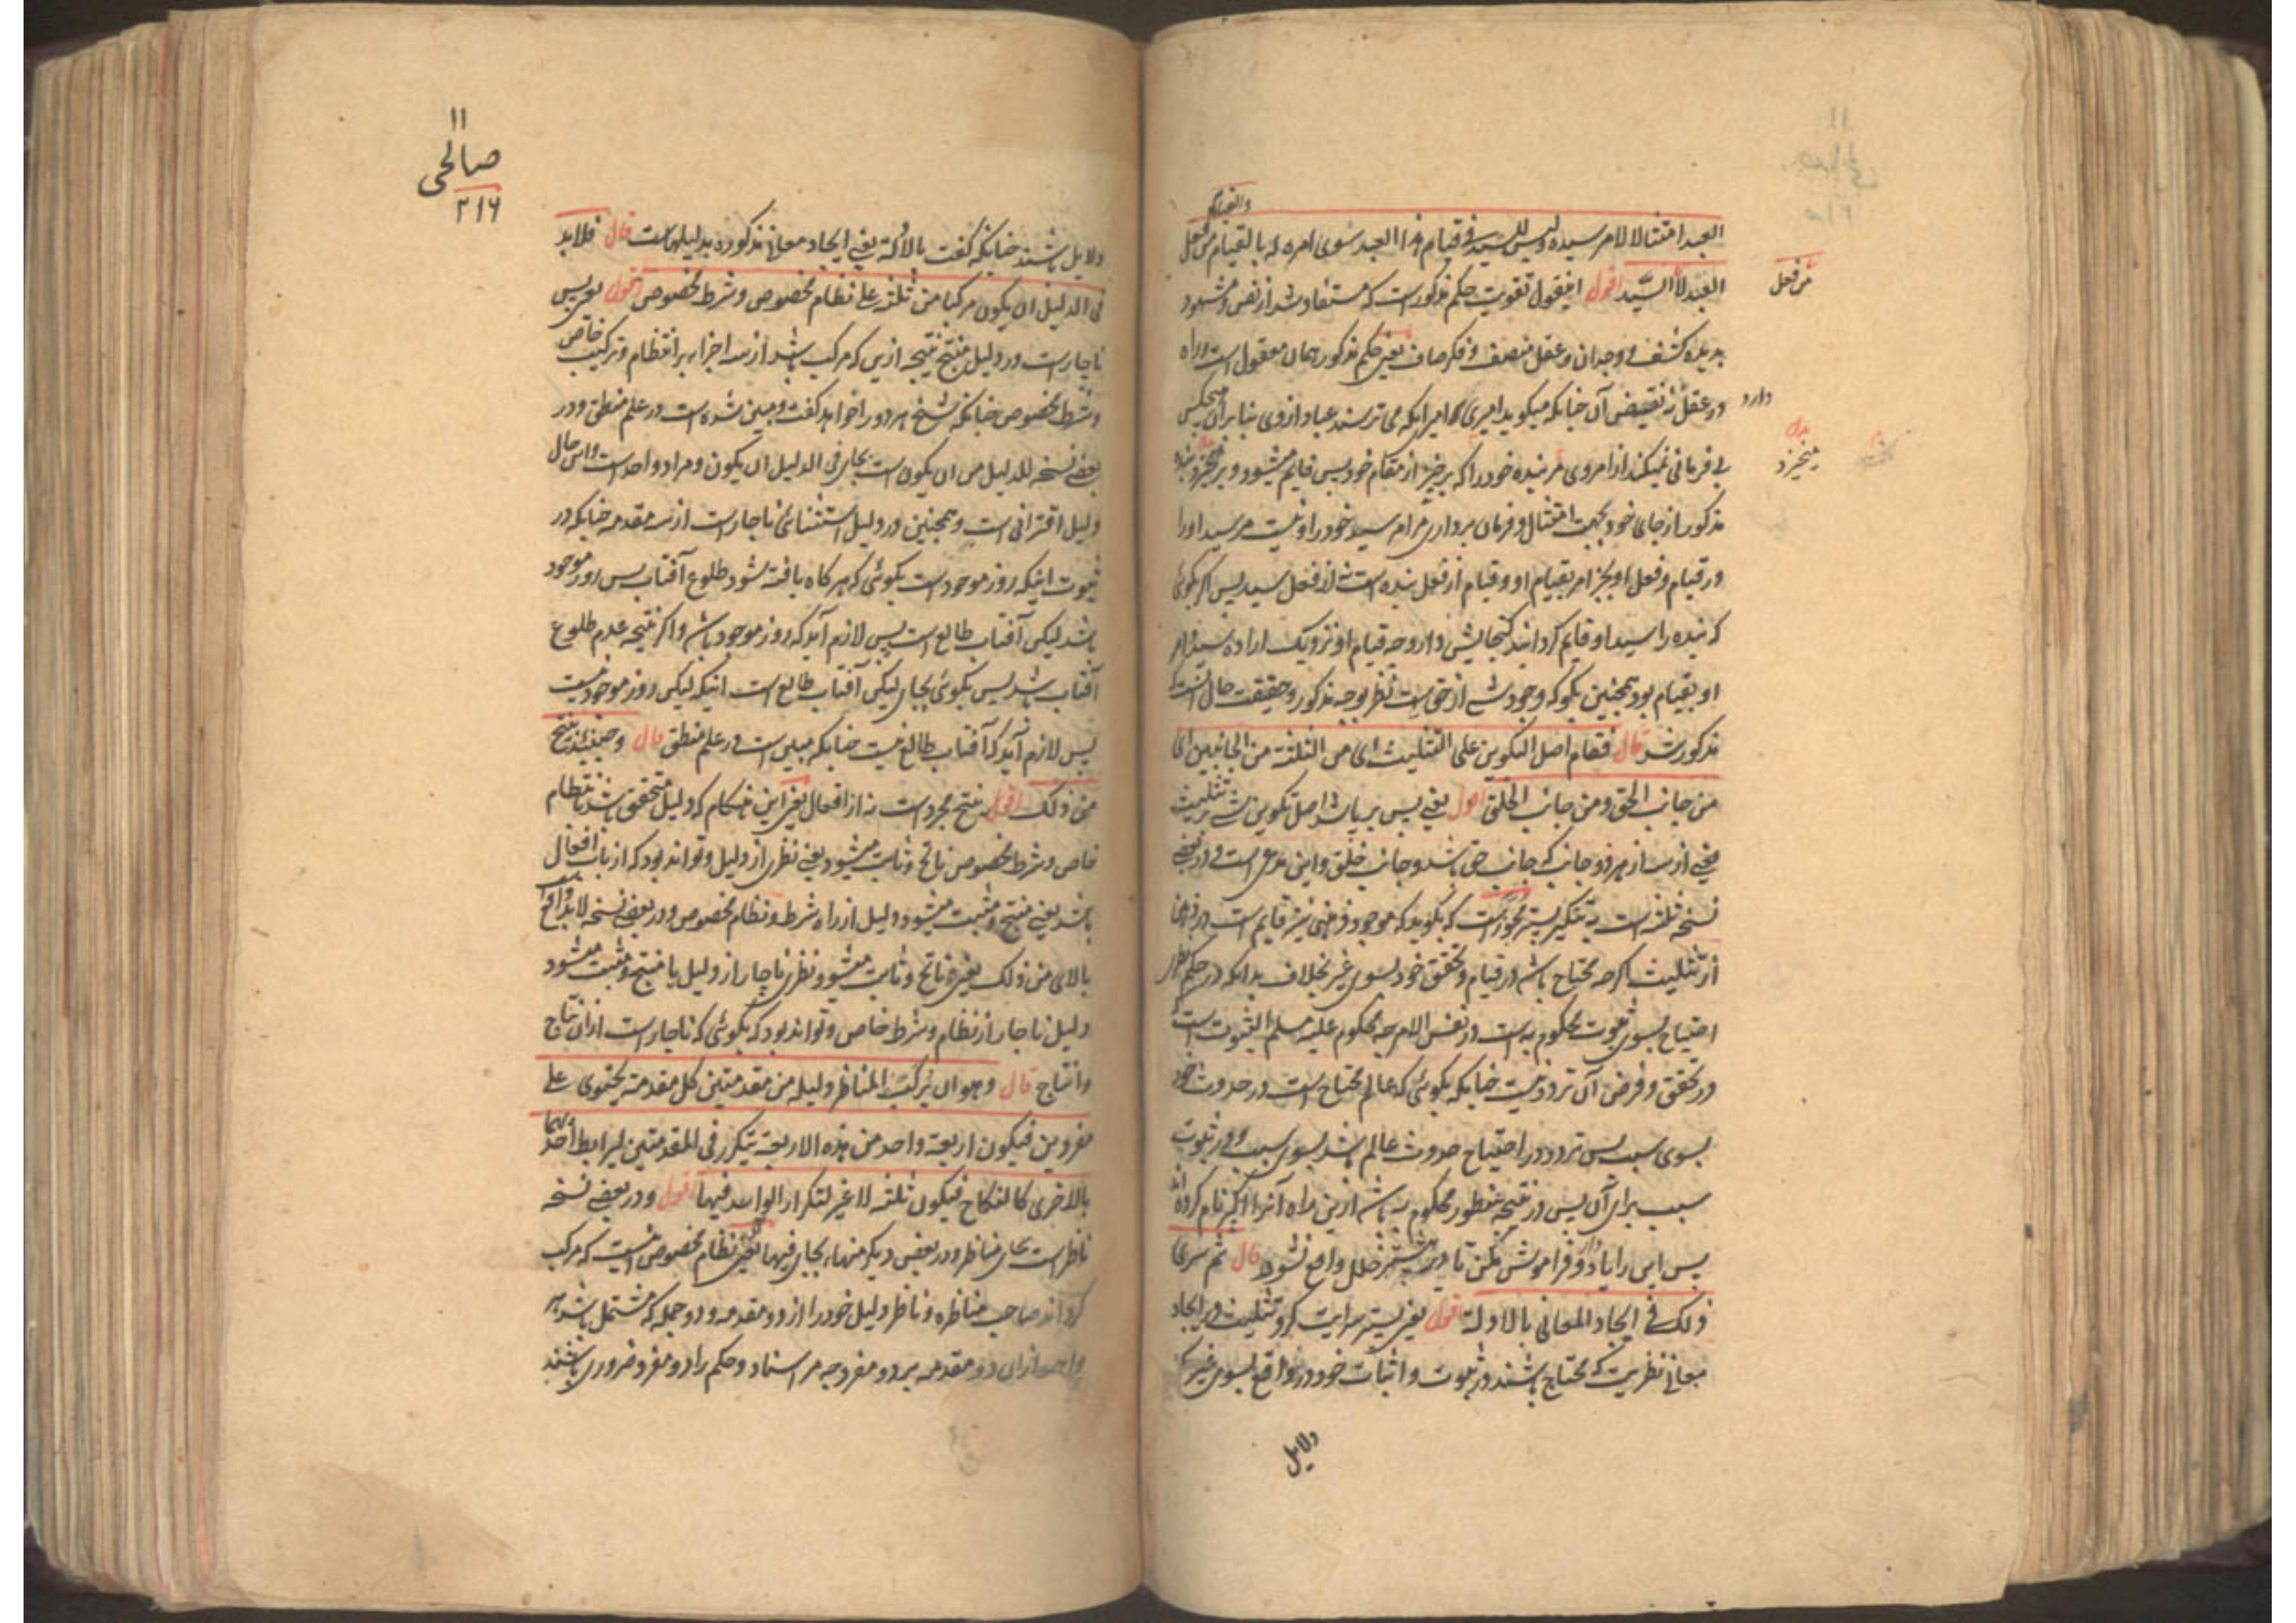 والقیام
العبد امتثالا لامر سیده ولیس للسید فی قیام هذا العبد سوی امره له بالقیام من فعل
العبد لا السید اقول اینقول تقویت حکم مذکور است که مستفاد شد از نص و مشهود
بدیده کشف و وجدان و عقل منصف و فکر صاف یعنی حکم مذکور همان معقول است و راه
در عقل نه نقیض آن چنانکه میگوید امیری که می ترسند عباد از وی بنابرآن هیچکس
بی فرمانی نمیکند از امر وی مر بنده خود را که برخیز از مقام خود پس قایم میشود و برمیخیزد بنده
مذکور از جای خود بجهت امتثال و فرمان برداری مر امر سید خود را و نیست مر سید او را
در قیام و فعل او بجز امر بقیام او و قیام از فعل بنده است نه از فعل سید پس اگر بگوئی
که بنده را سید او قایم گردانید گنجایش دارد چه قیام او نزدیک اراده سید و امر
او بقیام بود همچنین بگو که وجود شی از حق است نظر بوجه مذکور و حقیقت حال آنست که
مذکور شد قال فقام اصل التکوین علی التثلیث ای من الثلثة من الجانبین ای
من جانب الحق و من جانب الخلق اقول یعنی پس برپا شد اصل تکوین شی بر تثلیث
یعنی از سه از هر دو جانب که جانب حق باشد و جانب خلق و این مدعی است و در بعضی
نسخه ثلثه است
از تثلیث اگرچه محتاج باشد در قیام و تحقق خود بسوی غیر بخلاف بدانکه در حکم نظر
احتیاج بسوی ثبوت محکوم به است در نفس الامر چه محکوم علیه مسلم الثبوت است
در تحقق و فرض آن تردد نیست چنانکه بگوئی که عالم محتاج است در حدوث خود
بسوی سبب پس تردد در احتیاج حدوث عالم باشد بسوی سبب و در ثبوت
سبب برای آن پس در نتیجه منظور محکوم به باشد ازین راه آنرا اکبر نام کرده اند
پس این را یاد دار و فراموش مکن تا در پیشتر خلل واقع نشود قال ثم سری
ذلک فی ایجاد المعانی بالادلة اقول یعنی پستر سرایت کرد تثلیث در ایجاد
معانی نظریت که محتاج باشند در ثبوت و اثبات خود در واقع بسوی غیر که
من فعل
دارد
میخیزد
دلایل
۱۱
صالحی
۲۱۶
دلایل باشند چنانکه گفت بالادلة یعنی ایجاد معانی مذکوره بدلیلهاست قال فلابد
فی الدلیل ان یکون مرکبا من ثلثة علی نظام مخصوص و شرط مخصوص اقول یعنی پس
ناچار است در دلیل منتج نتیجه ازین که مرکب باشد از سه اجزاء بر انتظام و ترکیب خاص
و شرط مخصوص چنانکه شیخ هر دو را خواهد گفت و مبین شده است در علم منطق و در
بعض نسخه للدلیل من ان یکون است بجای فی الدلیل ان یکون و مراد واحد است و این حال
دلیل اقترانی است و همچنین در دلیل استثنائی ناچار است از سه مقدمه چنانکه در
ثبوت اینکه روز موجود است بگوئی که هر گاه یافته شود طلوع آفتاب پس روز موجود
باشد لیکن آفتاب طالع است پس لازم آید که روز موجود باشد و اگر نتیجه عدم طلوع
آفتاب باشد پس بگوئی بجای لیکن آفتاب طالع است اینکه لیکن روز موجود نیست
پس لازم آید که آفتاب طالع نیست چنانکه مبین است در علم منطق قال و حینئذ ینتج
من ذلک اقول ینتج مجرد است نه از افعال یعنی این هنگام که دلیل متحقق باشد بانتظام
خاص و شرط مخصوص ناتج و ثابت میشود یعنی نظری از دلیل و تواند بود که از باب افعال
باشد یعنی منتج و مثبت میشود دلیل از راه شرط و نظام مخصوص و در بعض نسخه لابد واقع
بالای من ذلک یعنی ناتج و ثابت میشود نظری ناچار از دلیل یا منتج و مثبت میشود
دلیل ناچار از نظام و شرط خاص و تواند بود که بگوئی که ناچار است از ان نتاج
و انتاج قال و هو ان یرکب المناظر دلیله من مقدمتین کل مقدمة یحتوی علی
مفردین فیکون اربعة واحد من هذه الاربعة یتکرر فی المقدمتین لیرابط احدیهما
بالاخری کالنکاح فیکون ثلثة لا غیر لتکرار الواحد فیهما اقول و در بعض نسخه
ناظر است بجای مناظر و در بعض دیگر منها بجای فیهما یعنی نظام مخصوص اینست که مرکب
گرداند صاحب مناظره و ناظر دلیل خود را از دو مقدمه و دو جمله که مشتمل باشد هر
واحد ازان دو مقدمه بر دو مفرد چه مر اسناد و حکم را دو مفرد ضروری باشند